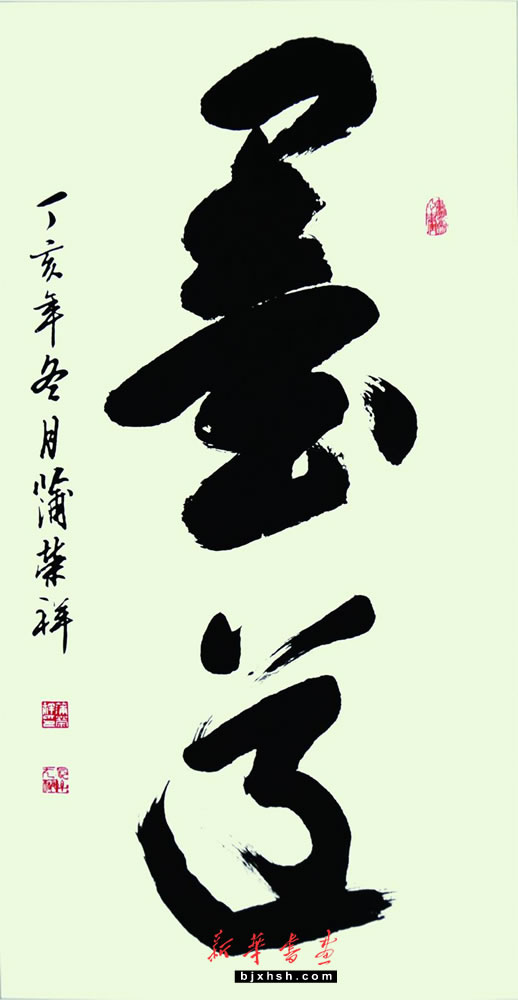 墨道
丁亥年冬月蒲荣祥
新華書画
bjxhsh.com